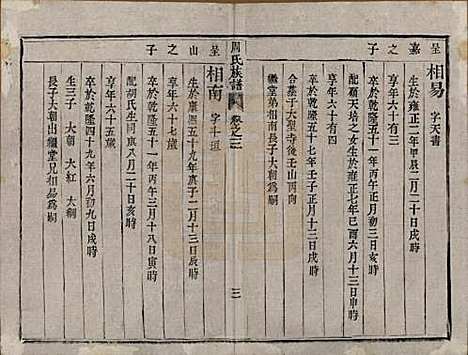 呈嘉之子
相易 字天書
生於雍正二年甲辰二月二十日戌時
卒於乾隆五十一年丙午三月十三日亥時
享年六十有三
配顧天培之女生於雍正七年己酉六月十三日申時
卒於乾隆五十七年壬子十月十三日戌時
享年六十有四
合墓子大聖寺後壬山丙向
繼堂弟相南長子大朝為嗣
周氏族譜 卷之二
三
呈山之子
相南 字斗垣
生於康熙五十九年庚子二月十三日辰時
卒於乾隆五十一年丙午三月十八日寅時
享年六十七歲
配胡氏生同庚八月二十日亥時
卒於乾隆四十九年六月初九日戌時
享年六十五歲
生三子 大朝 大紅 大
長子大朝出繼堂兄相易為嗣